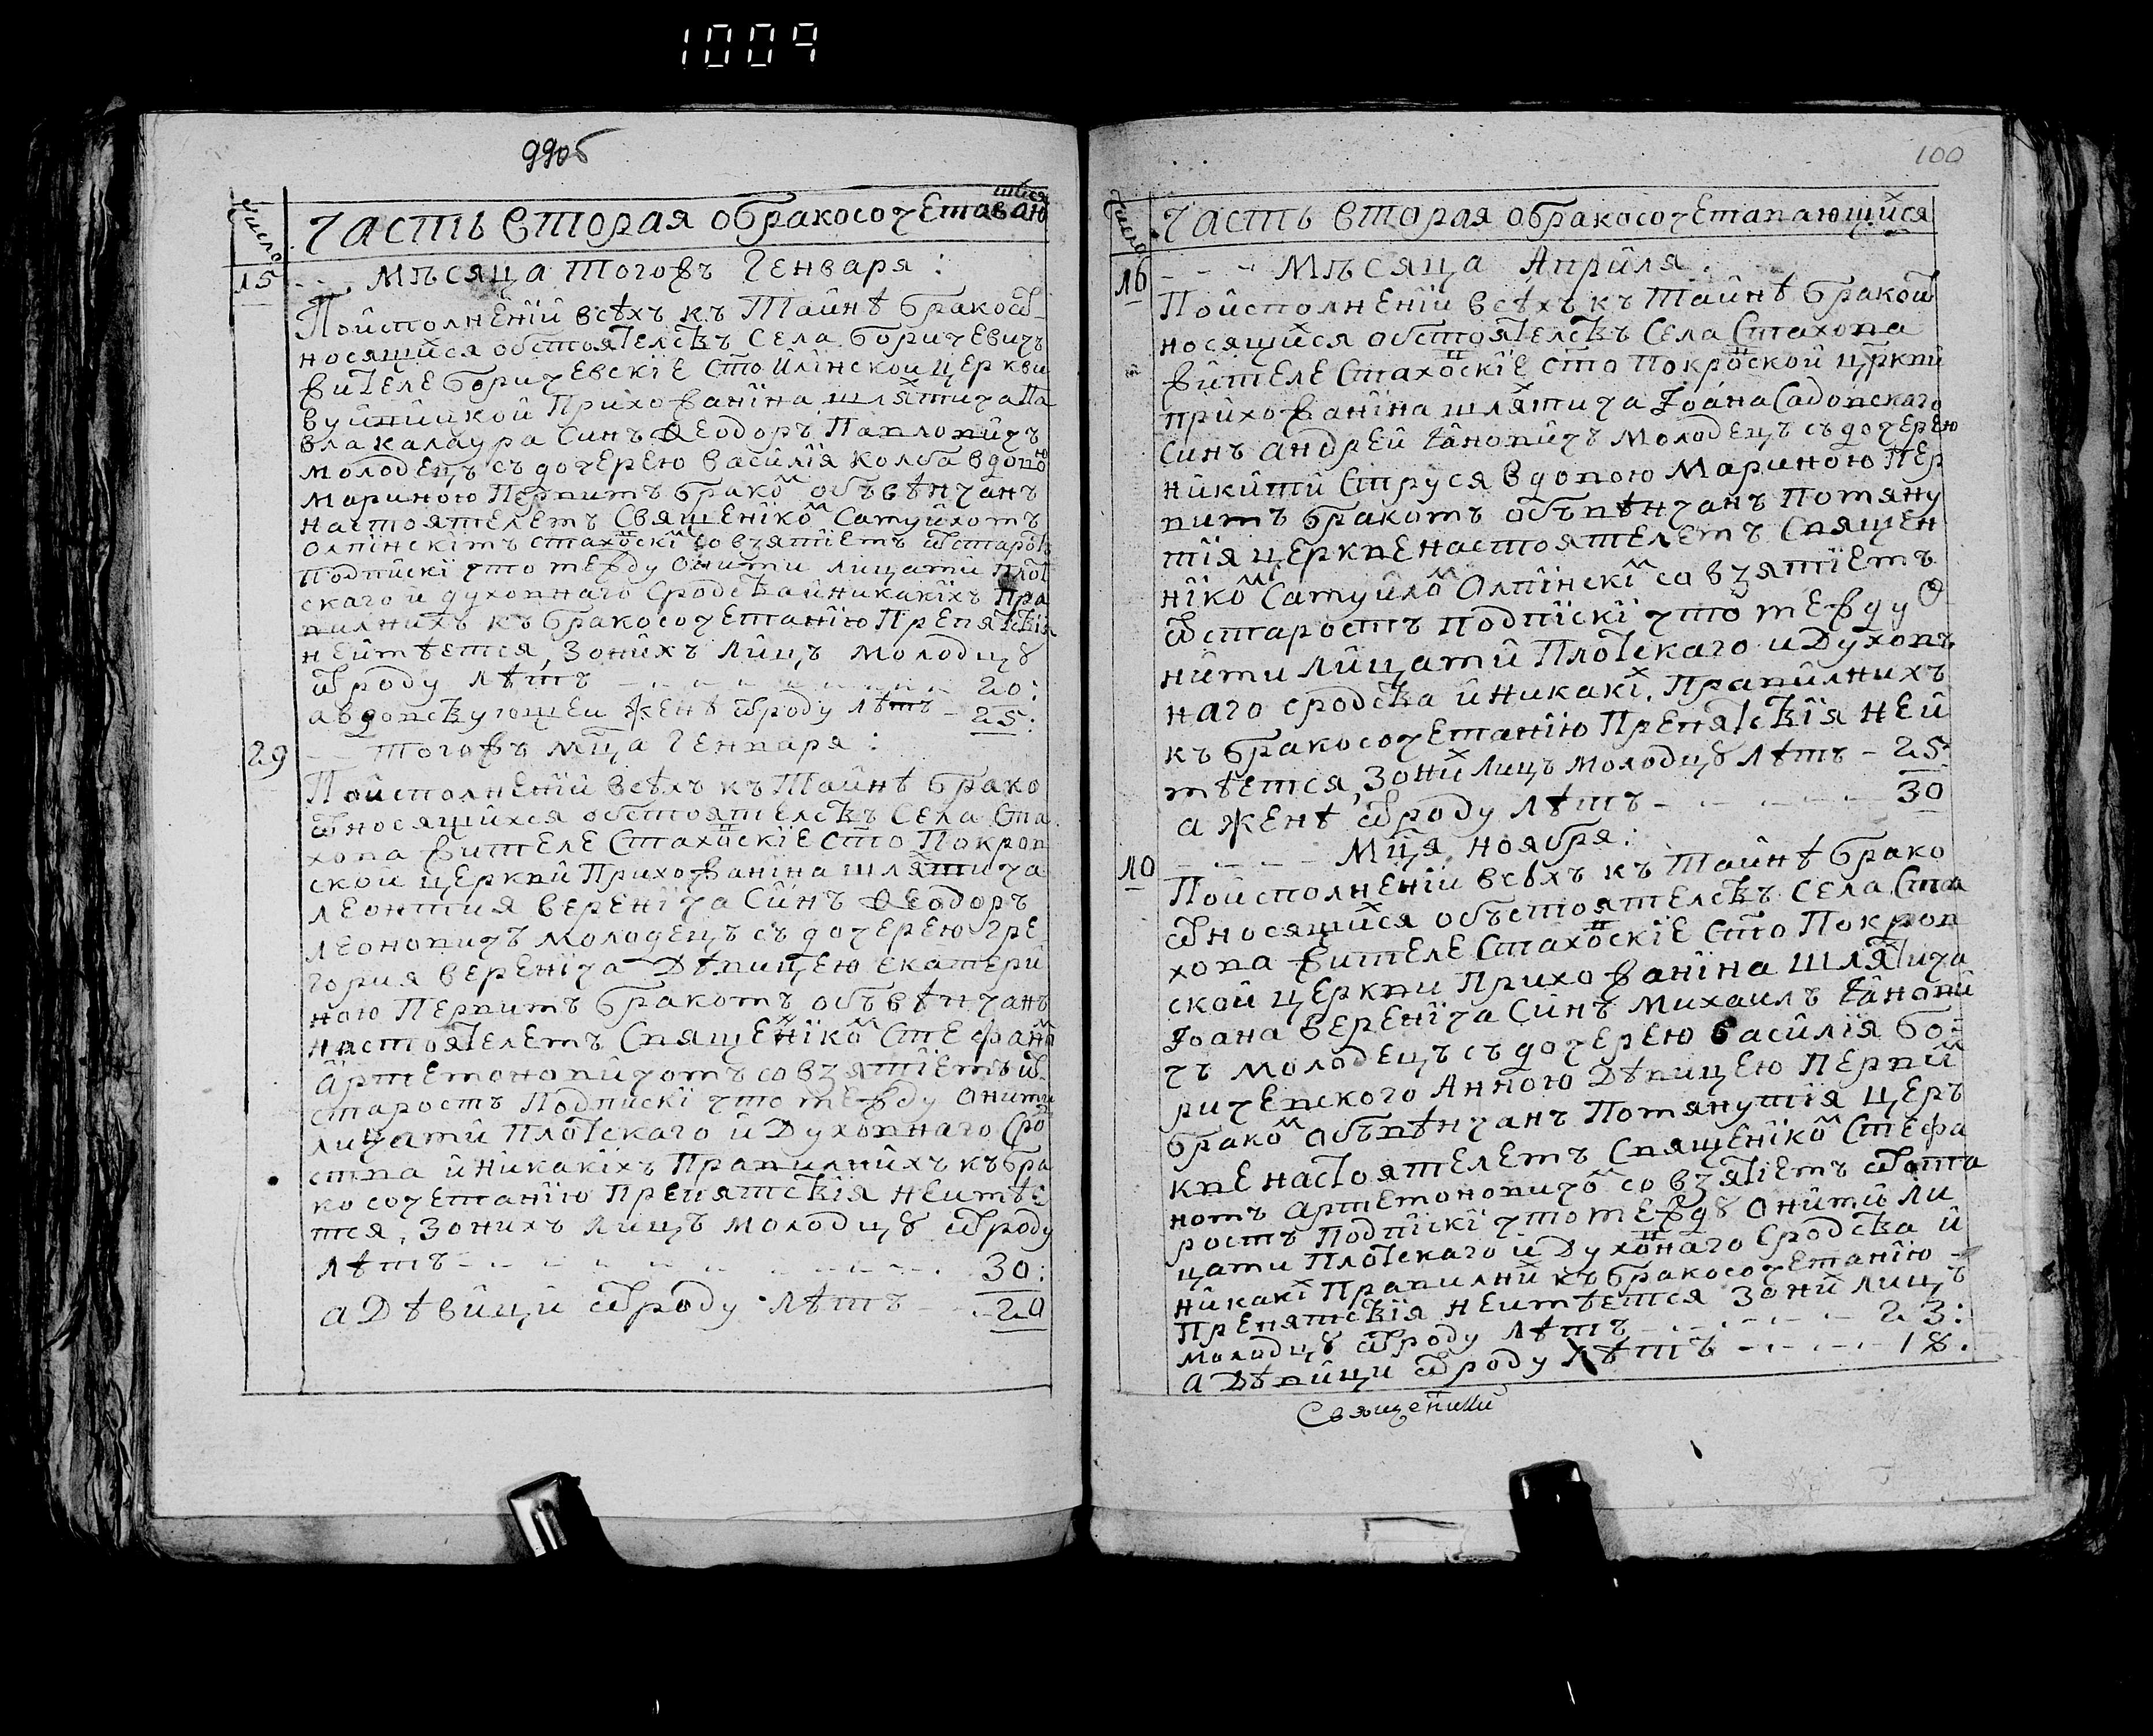 1009
99об
число
часть вторая обракосочетаваю
щихся
15
Мѣсяца тогожъ Генваря:
Поисполненіи всѣхъ къ Тайнѣ бракоѿ
носящихся обстоятелствъ Села боричевичъ
жителе боричевскіе сто Илінской церкви
вуйвицкой Прихожаніна шляхтича Па
вла калаура Синъ Ѳеодоръ Павловичъ
молодецъ съ дочерею василія колба вдово
ю
Мариною Первимъ бракомъ объвѣнчанъ
настоятелемъ Священікомъ Самуйломъ
олпінскімъ стаховскі со взятіемъ ѿ старостъ
подпіскі что между оними лицами плот
скаго и духовнаго сродства иникакіхъ пра
вилнихъ къ бракосочетанію Препятствія
неимѣется, Зонихъ Лицъ молодцу
ѿроду лѣтъ 20:
авдовствующеи женѣ ѿроду лѣтъ 25:
29
тогожъ мца Генваря:
Поисполненіи всѣхъ къ Тайнѣ брако
ѿносящихся обстоятелствъ Села Ста
хова жителе Стаховскіе сто Покров
ской церкви Прихожаніна шляхтича
леонтия вереніча Синъ Ѳеодоръ
леоновичъ молодецъ съ дочерею гре
гория вереніча Дѣвицею екатери
ною Первимъ бракомъ объвѣнчанъ
настоятелемъ Священікомъ Стефано
Артемоновичомъ совзятіемъ ѿ
старостъ Подписки что между оними
лицами Плотскаго и Духовнаго Срод
ства иникакіхъ Правилнихъ къ бра
косочетанію Препятствія неимѣе
тся, Зонихъ лицъ молодцу ѿроду
лѣтъ 30:
а Дѣвици ѿроду лѣтъ 20
100
число
часть вторая обракосочетавающихся
16
Мѣсяца Апрiля.
Поисполненіи всѣхъ къ Тайнѣ бракоѿ
носящихся обстоятелствъ Села Стахова
жителе Стаховскіе сто Покровской церкви
прихожаніна шляхтича Іоáна Садовскаго
Синъ андрей Іановичъ Молодецъ съ дочерею
никити Струся вдовою Мариною Пер
вимъ бракомъ объвѣнчанъ Помяну
тія церкве настоятелемъ Священ
нікомъ Самуиломъ Олпінскімъ со взятіемъ
ѿ старостъ подпіскі что между о
ними лицами Плотскаго и Духовъ
наго сродства иникакіх Правилнихъ
къ бракосочетанію Препятствія неи
мѣется, Зоних лицъ молодцу лѣтъ 25:
а женѣ ѿроду лѣтъ 30
10
Мця ноября:
Поисполненіи всѣхъ къ Тайнѣ брако
ѿносящихся объстоятелствъ Села Ста
хова жителе Стаховскіе Сто Покров
ской церкви Прихожаніна шляхтича
Іоана вереніча Синъ Михаилъ Іанови
чъ молодецъ съ дочерею василія бо:
ричевского Анною Дѣвицею Перви
бракомъ объвѣнчанъ Помянутія церъ
кве настоятелемъ Священікомъ Стефа
номъ артемоновичомъ со взятіемъ ѿ ста
ростъ Подпіскі что между оними ли
цами Плотскаго и Духовнаго Сродства и
никакі Правилни къ бракосочетанію
Препятствія неимѣется Зони лицъ
молодцу ѿроду лѣтъ 23:
а Дѣвици ѿроду лѣтъ 18.
Священики